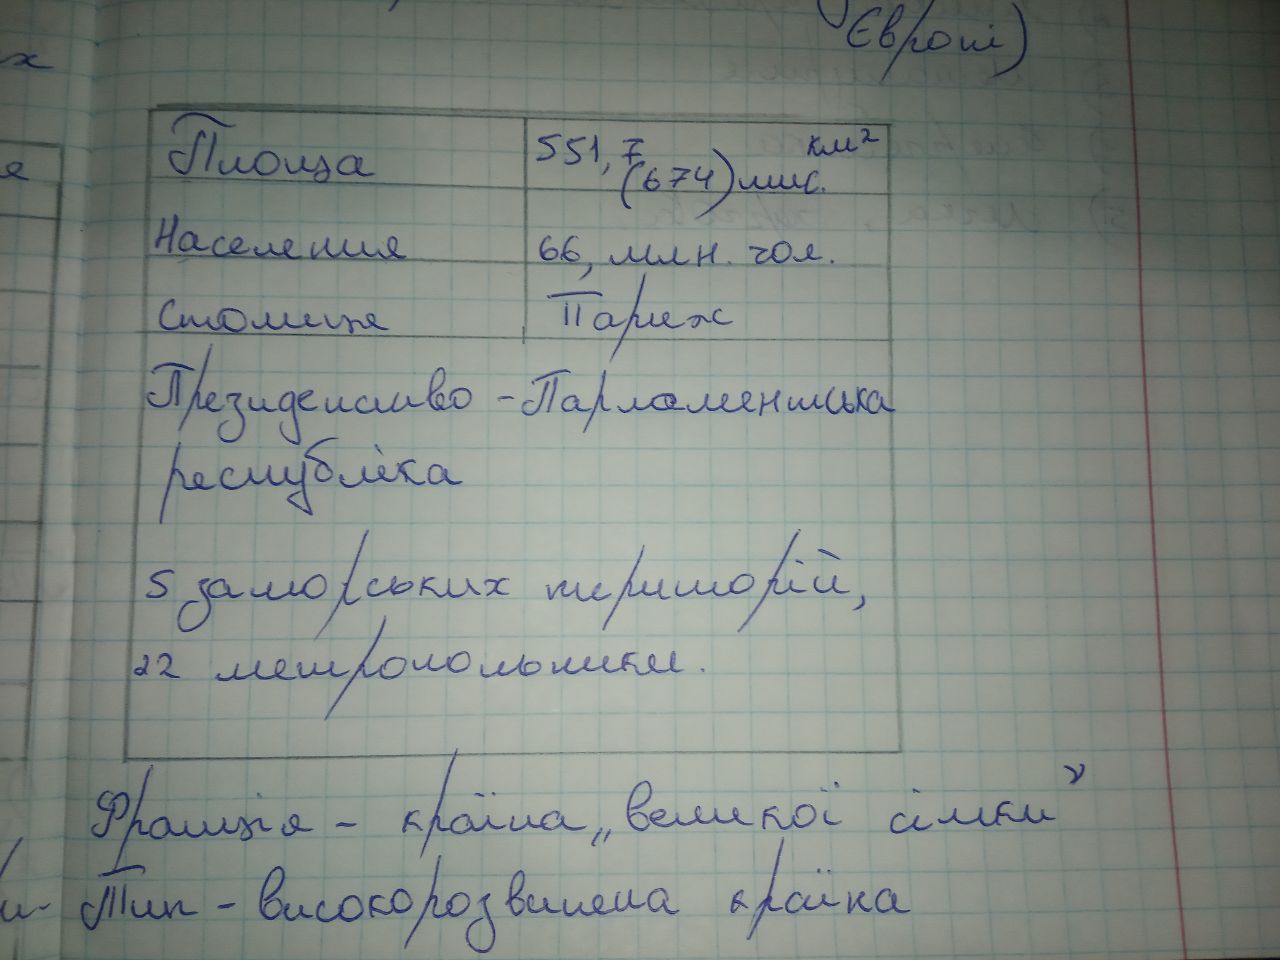 Європі)
Площа 551,7 км²
(674) тис.
Населення 66, млн. чол.
Столиця Париж
Президенство - Парламентська
республіка
5 заморських територій,
22 метропольники.
Франція - країна „великої сімки”
Тип - високорозвинена країна